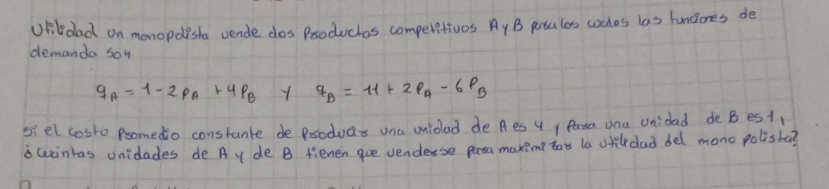 Utilidad Un monopolista vende dos Productos competitivos A y B para los cuales las funciones de
demanda son
q_A = 1 - 2P_A + 4P_B y q_B = 11 + 2P_A - 6P_B
si el costo Promedio constante de Producir una unidad de A es 4 y para una unidad de B es 1,
¿cuántas unidades de A y de B tienen que venderse para maximizar la utilidad del mono polista?